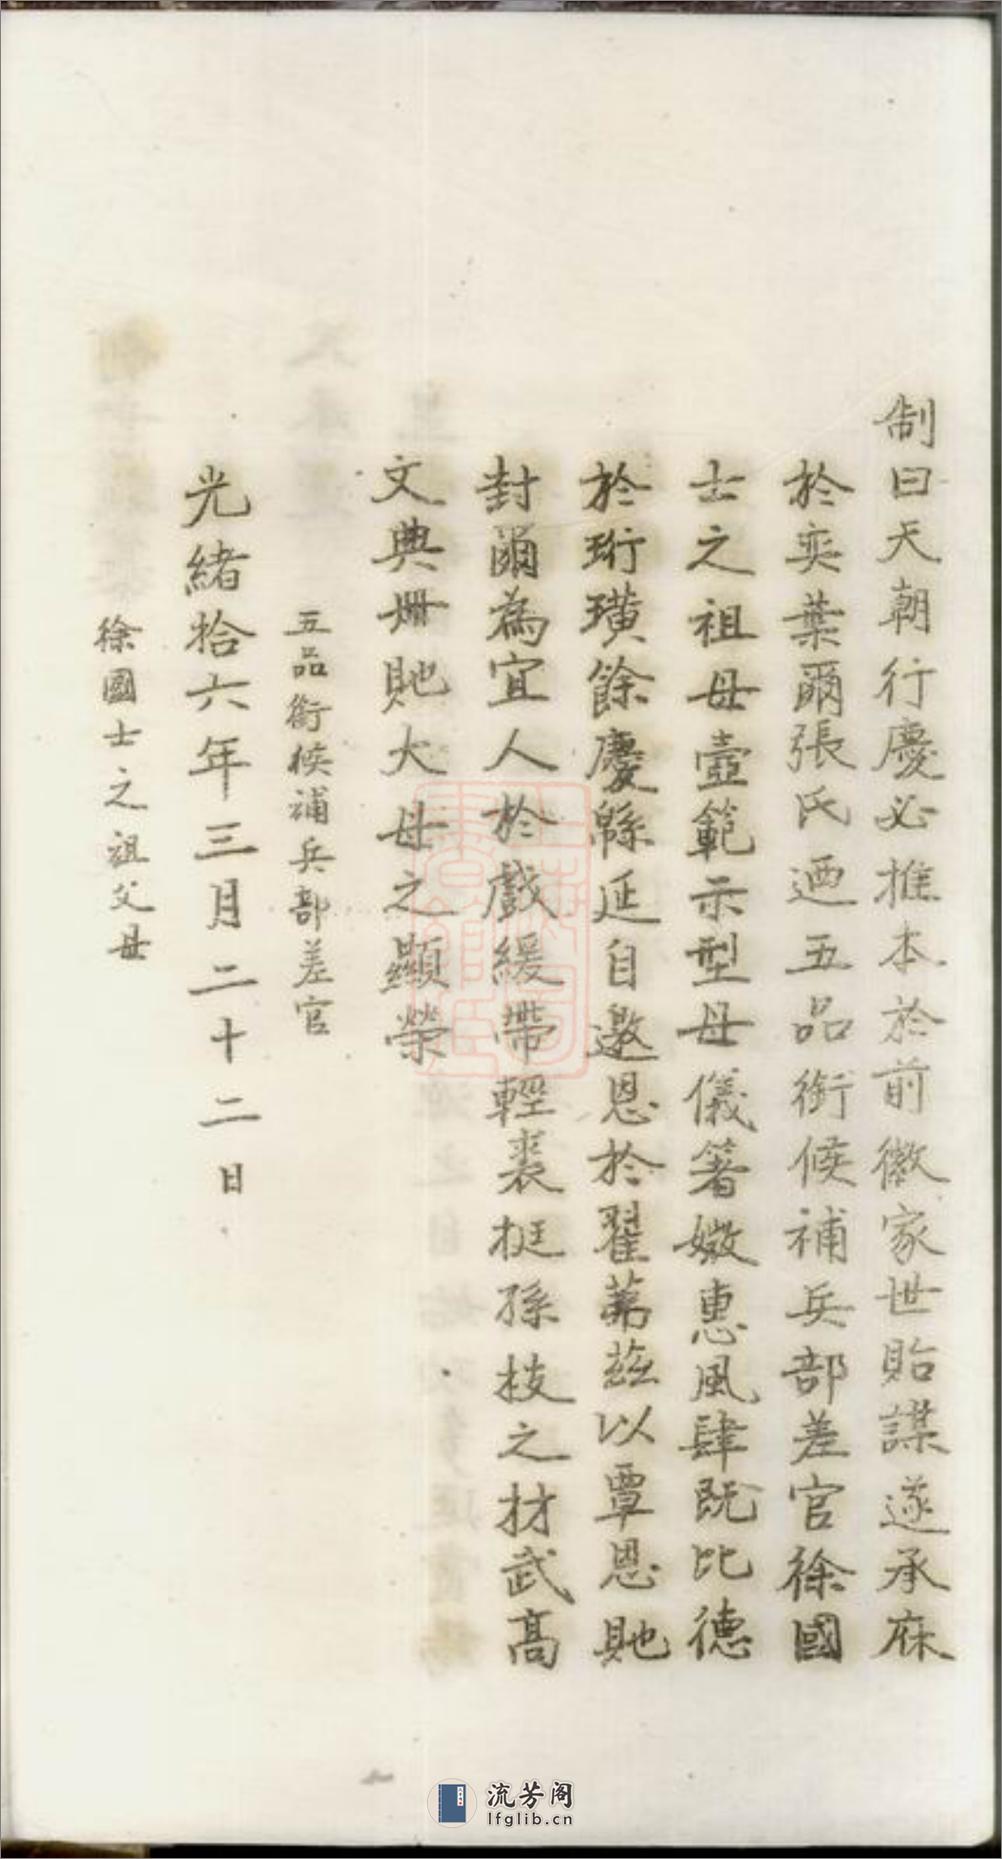 制曰天朝行慶必推本於前徽家世貽謀遂承庥
於奕葉爾張氏迺五品銜候補兵部差官徐國
士之祖母壼範示型母儀著媺惠風肆既比德
於珩璜餘慶緜延自邀恩於翟茀茲以覃恩貤
封爾為宜人於戲緩帶輕裘挺孫枝之材武高
文典冊貤大母之顯榮
五品銜候補兵部差官
光緒拾六年三月二十二日
徐國士之祖父母
流芳阁
lfglib.cn